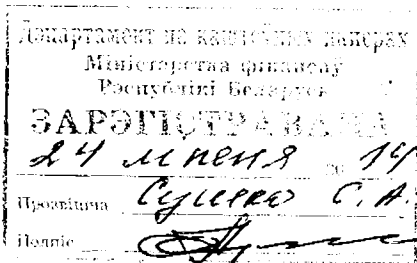 Дэпартамент па каштоўных паперах
Міністэрства фінансаў
Рэспублікі Беларусь
ЗАРЭГІСТРАВАНА
24 ліпеня 20 14
Прозвішча С. А.
Подпіс